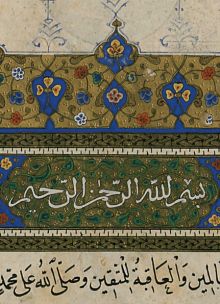 بسم الله الرحمن الرحيم
والعاقبة للمتقين وصلى الله على محمد